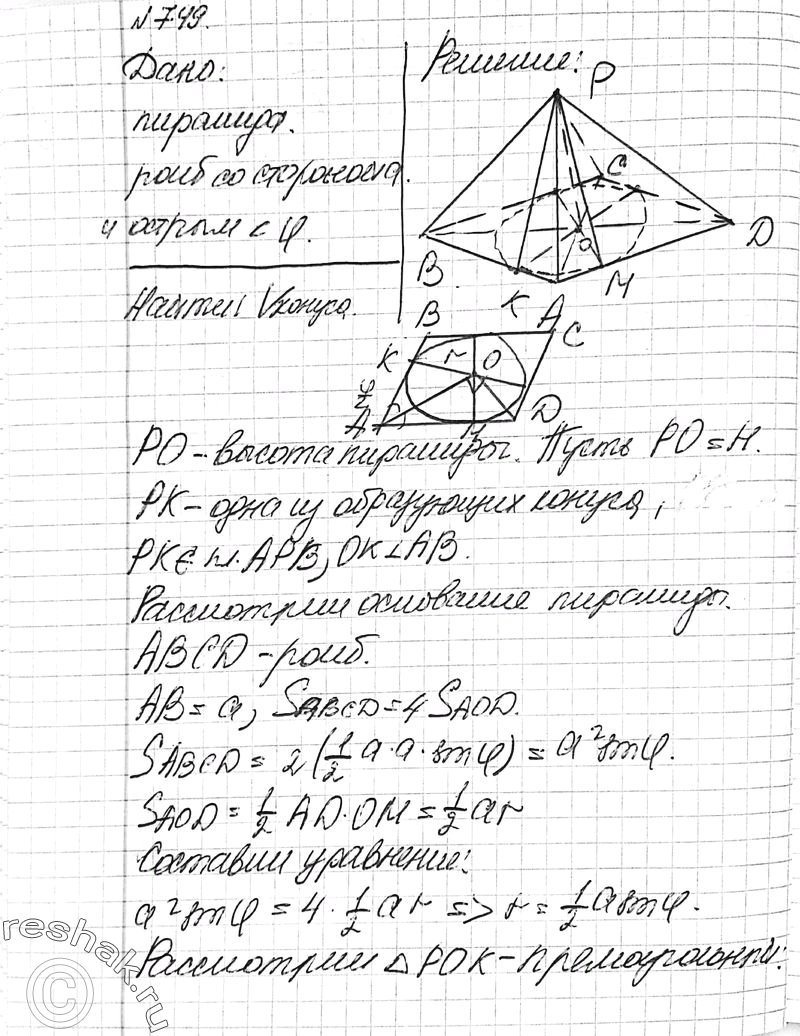 №749.
Дано:
пирамида.
ромб со стороной a.
и острым < φ.
Найти: Vконуса.
Решение:
P
C
B
O
D
K
A
M
B
C
K
r
O
φ/2
A
D
M
PO – высота пирамиды. Пусть PO = H.
PK – одна из образующих конуса,
PK ∈ пл. APB, OK ⊥ AB.
Рассмотрим основание пирамиды.
ABCD – ромб.
AB = a, SABCD = 4 SAOD.
SABCD = 2(1/2 a·a·sinφ) = a²sinφ.
SAOD = 1/2 AD·OM = 1/2 ar
Составим уравнение:
a²sinφ = 4·1/2 ar => r = 1/2 a sinφ.
Рассмотрим △ POK – прямоугольный:
reshak.ru
©